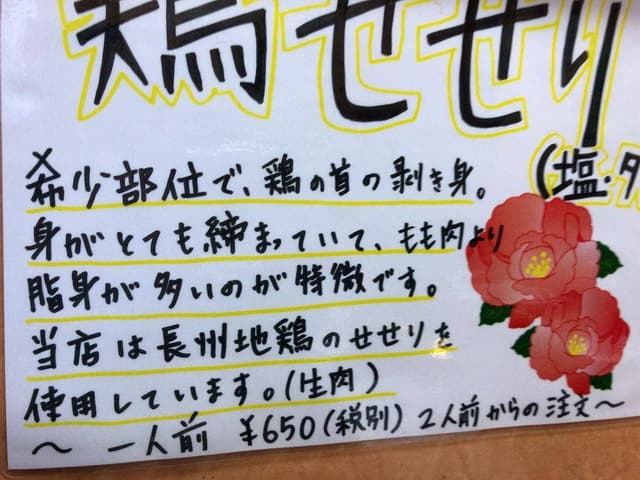 鶏せせり
(塩・タ
希少部位で、鶏の首の剥き身。
身がとても締まっていて、もも肉より
脂身が多いのが特徴です。
当店は長州地鶏のせせりを
使用しています。(生肉)
〜 一人前 ¥650(税別) 2人前からの注文〜